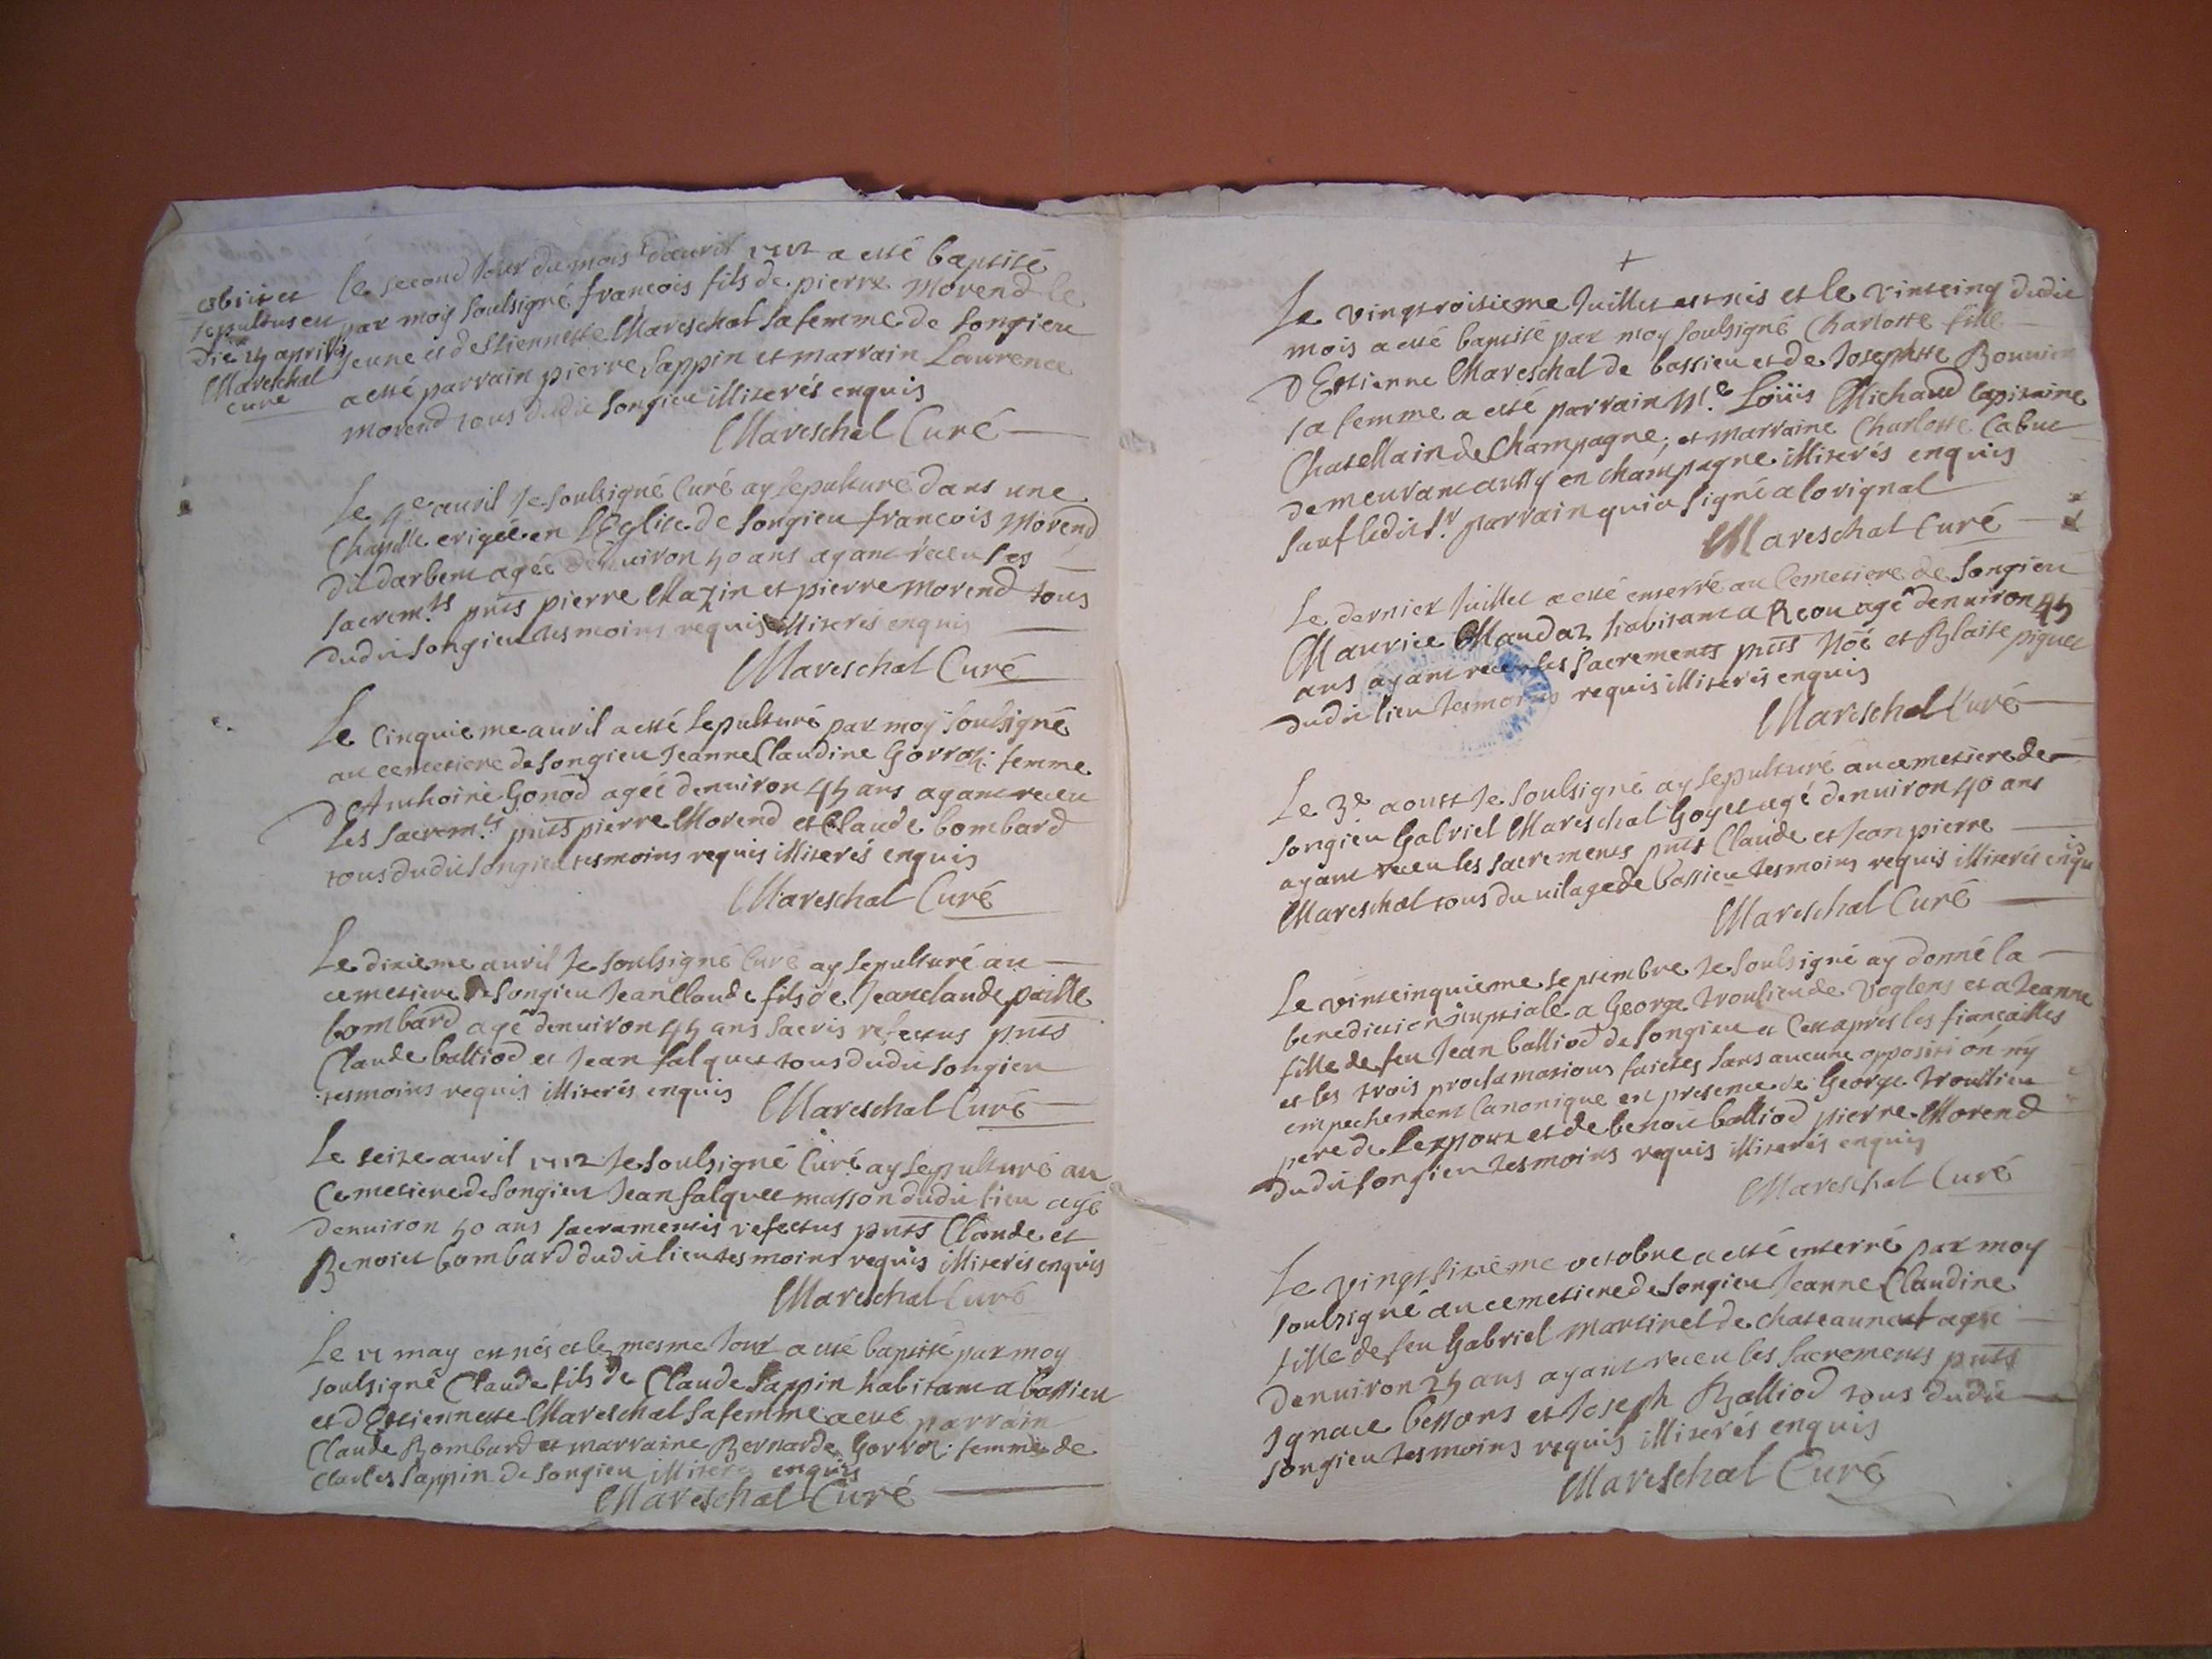 le second Jour du mois d'avril 1712 a esté baptisé
par moy soubsigné francois fils de pierre Morend le
Jeune et de Stiennette Mareschal sa femme de Songieu
a esté parrain pierre Sappin et marraine Laurence
Morend tous dudit Songieu illiterés enquis
Mareschal Curé
obiit et
sepultus est
die 25 aprilis
Mareschal
curé
Le 4e avril Je soubsigné Curé ay sepulturé dans une
Chapelle erigée en l'Eglise de Songieu francois Morend
dit darbent agée d'enuiron 50 ans ayant receu ses
sacremts pnts pierre Mazin et pierre Morend tous
dudit Songieu tesmoins requis illiterés enquis
Mareschal Curé
Le Cinquieme auril a esté sepulturé par moy soubsigné
au cemetiere de Songieu Jeanne Claudine Gorraz femme
d'Anthoine Gonod agée denuiron 45 ans ayant receu
les sacremts pnts pierre Morend et Claude bombard
tous dudit Songieu tesmoins requis illiterés enquis
Mareschal Curé
Le dixieme auril Je soubsigné Curé ay sepulturé au
cemetiere de Songieu Jean Claude fils de Jeanclaude paille
bombard agé denuiron 45 ans sacris refectus pnts
Claude balliod et Jean falquet tous dudit Songieu
tesmoins requis illiterés enquis
Mareschal Curé
Le seize auril 1712 Je soubsigné Curé ay sepulturé au
Cemetiere de Songieu Jean falquet masson dudit lieu agé
denuiron 50 ans sacramentis refectus pnts Claude et
Benoict bombard dudit lieu tesmoins requis illiterés enquis
Mareschal Curé
Le 15 may est nés et le mesme Jour a esté baptisé par moy
soubsigné Claude fils de Claude Sappin habitant a bassieu
et d'Estiennette Mareschal sa femme a esté parrain
Claude Bombard et marraine Bernarde Gorraz femme de
Charles Sappin de Songieu illiterés enquis
Mareschal Curé
Le vingtroisieme Juillet est nés et le vintcinq dudit
mois a esté baptisé par moy soubsigné Charlotte fille
d'Estienne Mareschal de bassieu et de Josephtte Bonnier
sa femme a esté parrain Me Loüis Michaud Capitaine
Chatellain de Champagne, et marraine Charlotte Cabuet
demeurant aussy en champagne illiterés enquis
sauf ledit Sr parrain qui a signé a lorignal
Mareschal Curé
Le dernier Juillet a esté enterré au Cemetiere de Songieu
Maurice Maudaz habitant a Reou agé denuiron 45
ans ayant receu les sacrements pnts Noé et Blaise piguet
dudit lieu tesmoins requis illiterés enquis
Mareschal Curé
Le 3e aoust Je soubsigné ay sepulturé au cemetiere de
Songieu Gabriel Mareschal Goyet agé denuiron 40 ans
ayant receu les sacrements pnts Claude et Jean pierre
Mareschal tous du uilage de bassieu tesmoins requis illiterés enqu
Mareschal Curé
Le vintcinquieme septembre Je soubsigné ay donné la
benediction nuptiale a George trouilieu de Voglens et a Jeanne
fille de feu Jean balliod de Songieu et Cest apres les fiancailles
et les trois proclamations faictes sans aucune opposition ny
empechement Canonique en presence de George trouilieu
pere de lespoux et de benoit balliod pierre Morend
dudit Songieu tesmoins requis illiterés enquis
Mareschal Curé
Le vingtsixieme octobre a esté enterré par moy
soubsigné au cemetiere de Songieu Jeanne Claudine
fille de feu Gabriel Martinet de chateauneuf agée
denuiron 25 ans ayant receu les sacrements pnts
Ignace bessons et Joseph Balliod tous dudit
Songieu tesmoins requis illiterés enquis
Mareschal Curé